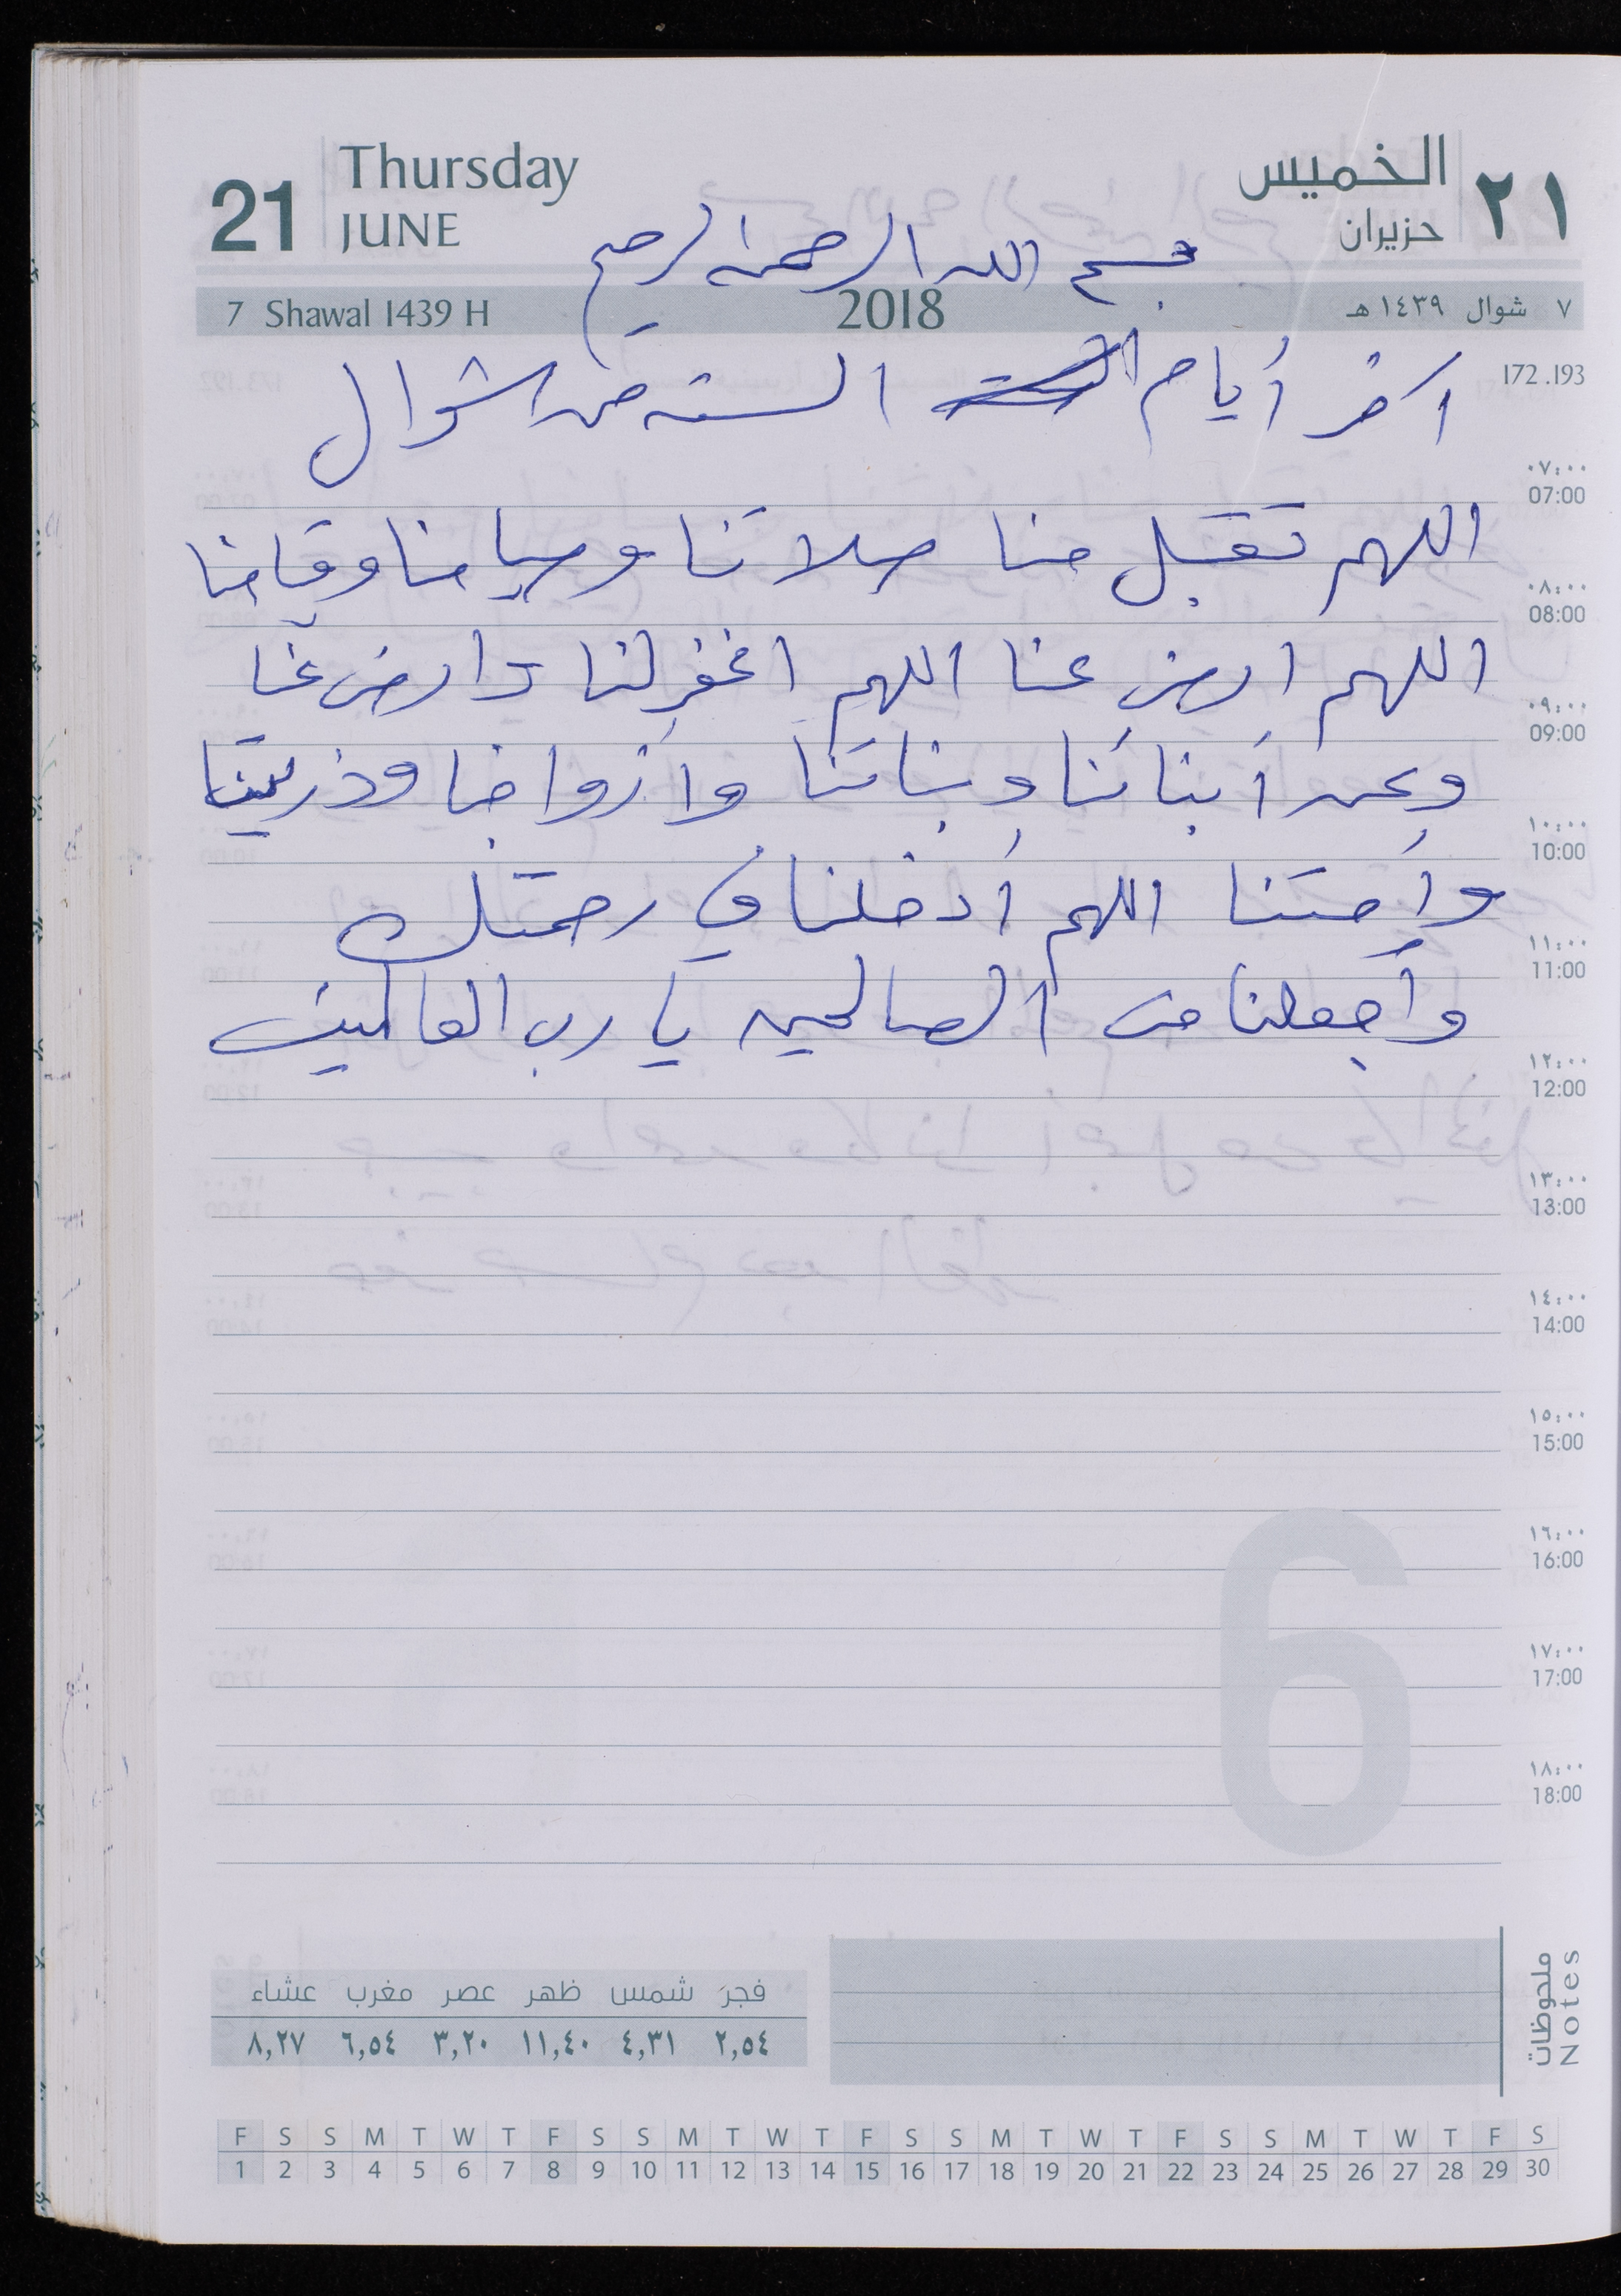 21 Thursday JUNE الخميس حزيران ٢١
بسم الله الرحمن الرحيم
7 Shawal 1439 H 2018 ٧ شوال ١٤٣٩ هـ
172.193
اخر أيام الستة من شوال
٠٧:٠٠
07:00
اللهم تقبل منا صلاتنا وصيامنا وقيامنا
٠٨:٠٠
08:00
اللهم ارض عنا اللهم اغفر لنا وارض عنا
٠٩:٠٠
09:00
وعن أبنائنا وبناتنا وازواجنا وذريتنا
١٠:٠٠
10:00
وأمتنا اللهم أدخلنا في رحمتك
١١:٠٠
11:00
وأجعلنا من الصالحين يا رب العالمين
١٢:٠٠
12:00
١٣:٠٠
13:00
١٤:٠٠
14:00
١٥:٠٠
15:00
١٦:٠٠
16:00
6
١٧:٠٠
17:00
١٨:٠٠
18:00
ملحوظات
Notes
فجر شمس ظهر عصر مغرب عشاء
٢,٥٤ ٤,٣١ ١١,٤٠ ٣,٢٠ ٦,٥٤ ٨,٢٧
F S S M T W T F S S M T W T F S S M T W T F S S M T W T F S
1 2 3 4 5 6 7 8 9 10 11 12 13 14 15 16 17 18 19 20 21 22 23 24 25 26 27 28 29 30